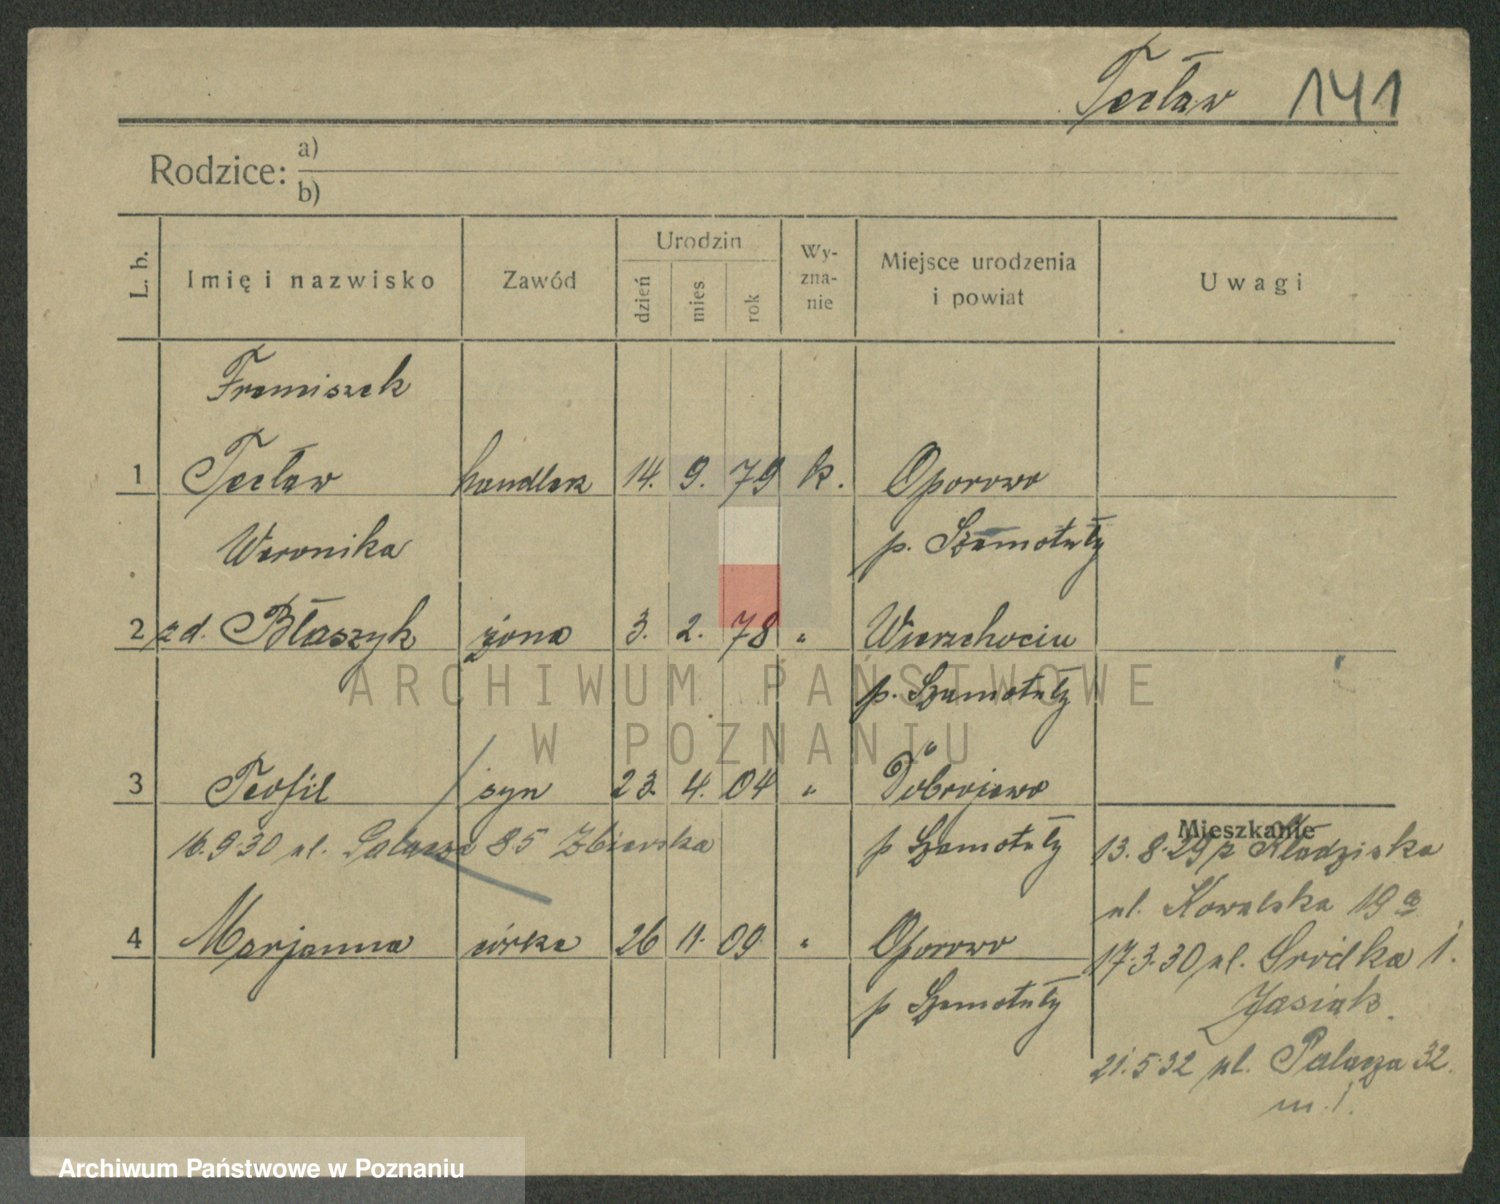 Tecław 141
Rodzice: a)
b)
L. b. Imię i nazwisko Zawód Urodzin dzień mies rok Wy-zna-nie Miejsce urodzenia i powiat Uwagi
Franciszek
1 Tecław handlarz 14. 9. 79 k. Oporowo
Weronika p. Szamotuły
2 z d. Błaszyk żona 3. 2. 78 " Wierzchociu
p. Szamotuły
3 Teofil syn 23. 4. 04 " Dobrojewo
Mieszkanie
16.9.30 ul. Palacza 85 Zbierska p Szamotuły 13. 8. 29 z Kłodziska
ul. Kowalska 19 a
4 Marjanna córka 26 11. 09 " Oporowo
17.3.30 ul. Śródka 1.
p Szamotuły Jasiak.
21.5.32 ul. Palacza 32
m. 1.
ARCHIWUM PAŃSTWOWE
W POZNANIU
Archiwum Państwowe w Poznaniu